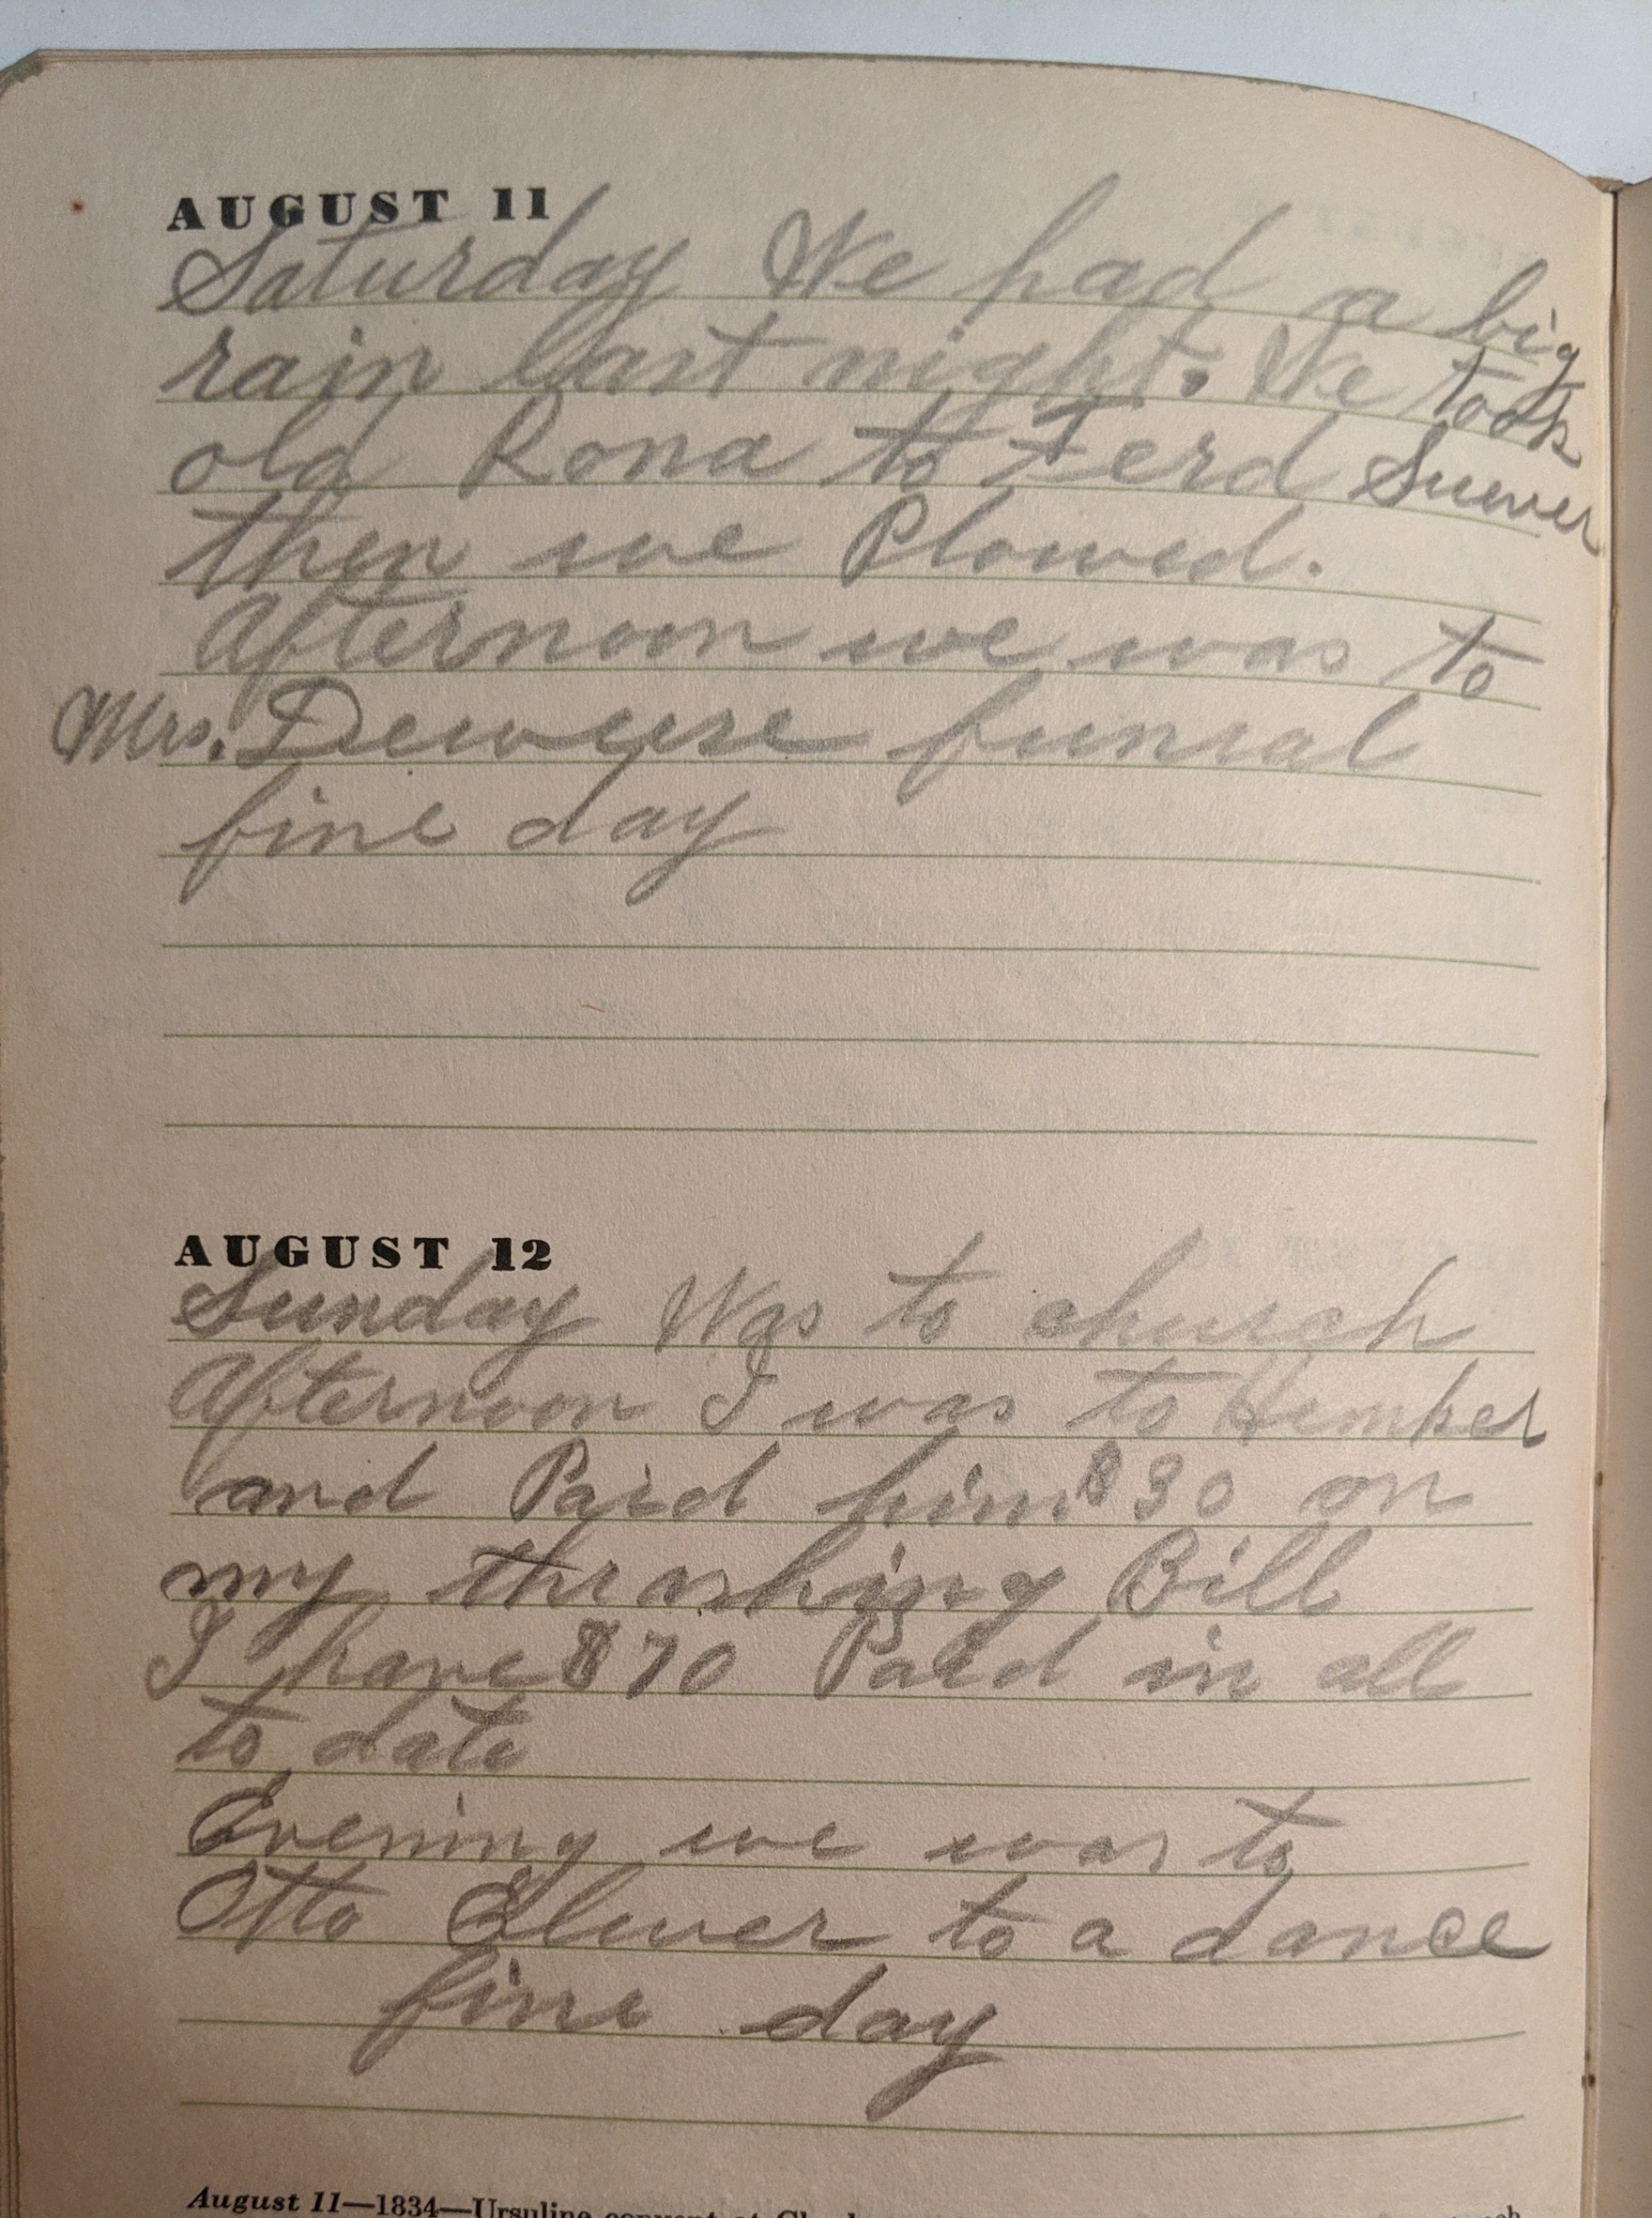 AUGUST 11
Saturday We had a big
rain last night. We took
old Rona to Ferd Suever
then we Plowed.
Afternoon we was to
Mrs. Dewyse funral
fine day
AUGUST 12
Sunday Was to church
Afternoon I was to Hemker
and Paid him $30 on
my thrashing Bill
I have $70 Paid in all
to date
Evening we was to
Otto Elwer to a dance
fine day
August 11—1834—Ursuline convent at